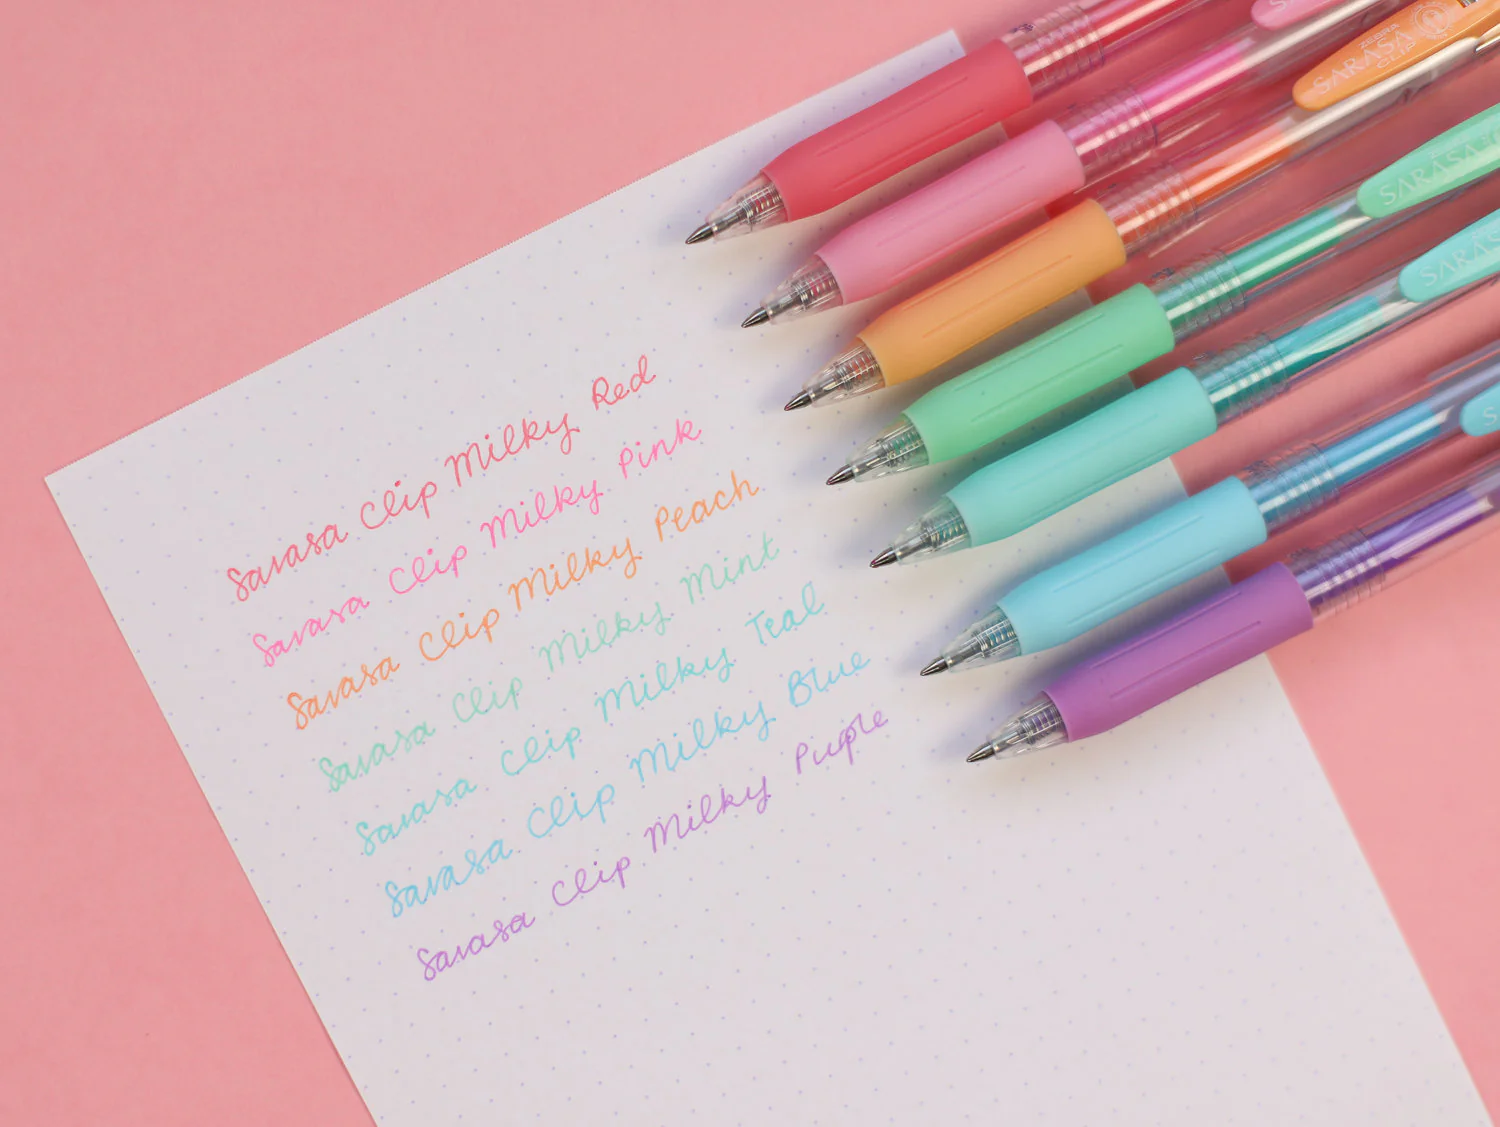 Sarasa Clip Milky Red
Sarasa Clip Milky Pink
Sarasa Clip Milky Peach
Sarasa Clip Milky Mint
Sarasa Clip Milky Teal
Sarasa Clip Milky Blue
Sarasa Clip Milky Puple
ZEBRA
SARASA
CLIP
SARASA
SARASA